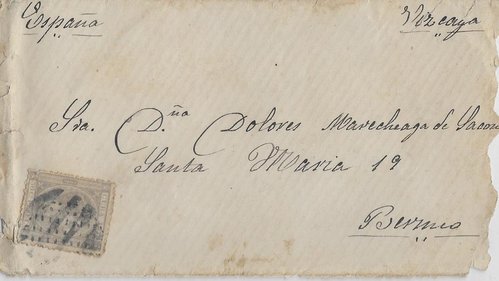 España Vizcaya
Sra. D.ña Dolores Marecheaga de
Santa Maria 19
Bermeo